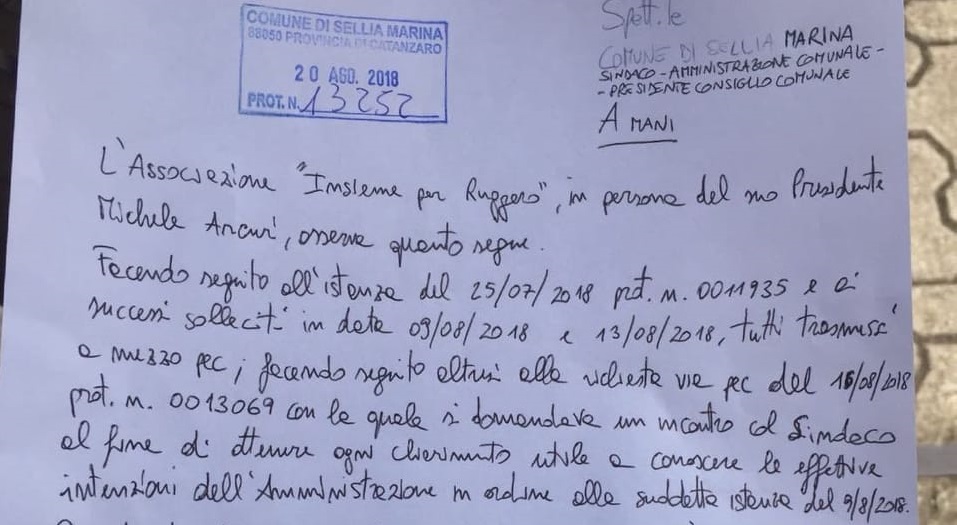 COMUNE DI SELLIA MARINA
88050 PROVINCIA DI CATANZARO
20 AGO. 2018
PROT. N. 13252
Spett.le
COMUNE DI SELLIA MARINA
SINDACO - AMMINISTRAZIONE COMUNALE -
- PRESIDENTE CONSIGLIO COMUNALE
A MANI
L'Associazione "Insieme per Ruggero", in persona del suo Presidente
Michele Arcuri, osserva quanto segue.
Facendo seguito all'istanza del 25/07/2018 prot. n. 0011935 e ai
successi solleciti in data 09/08/2018 e 13/08/2018, tutti trasmessi
a mezzo pec; facendo seguito altresì alla richiesta via pec del 16/08/2018
prot. n. 0013069 con la quale si domandava un incontro col Sindaco
al fine di ottenere ogni chiarimento utile a conoscere le effettive
intenzioni dell'Amministrazione in ordine alla suddetta istanza del 9/8/2018.